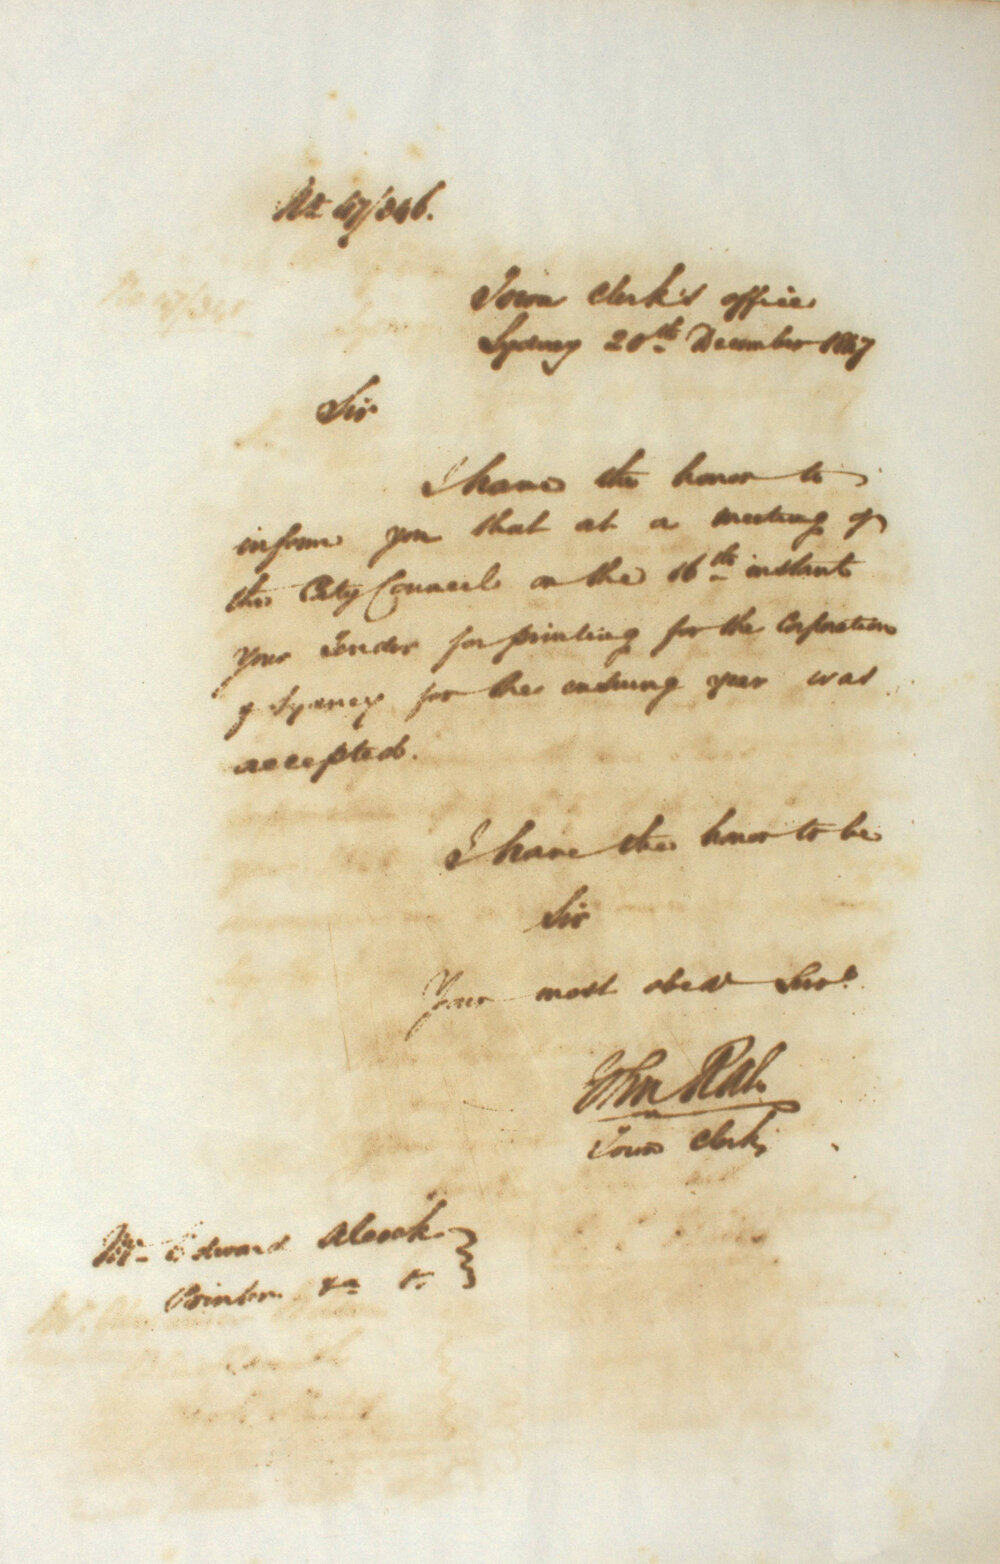 No 47/346.
Town Clerk's office
Sydney 20th December 1847
Sir
I have the honor to
inform you that at a meeting of
the City Council on the 16th instant
your Tender for printing for the Corporation
of Sydney for the ensuing year was
accepted.
I have the honor to be
Sir
Your most obedt Servt
John Rae
Town Clerk
Mr Edward Alcock
Printer &c &c